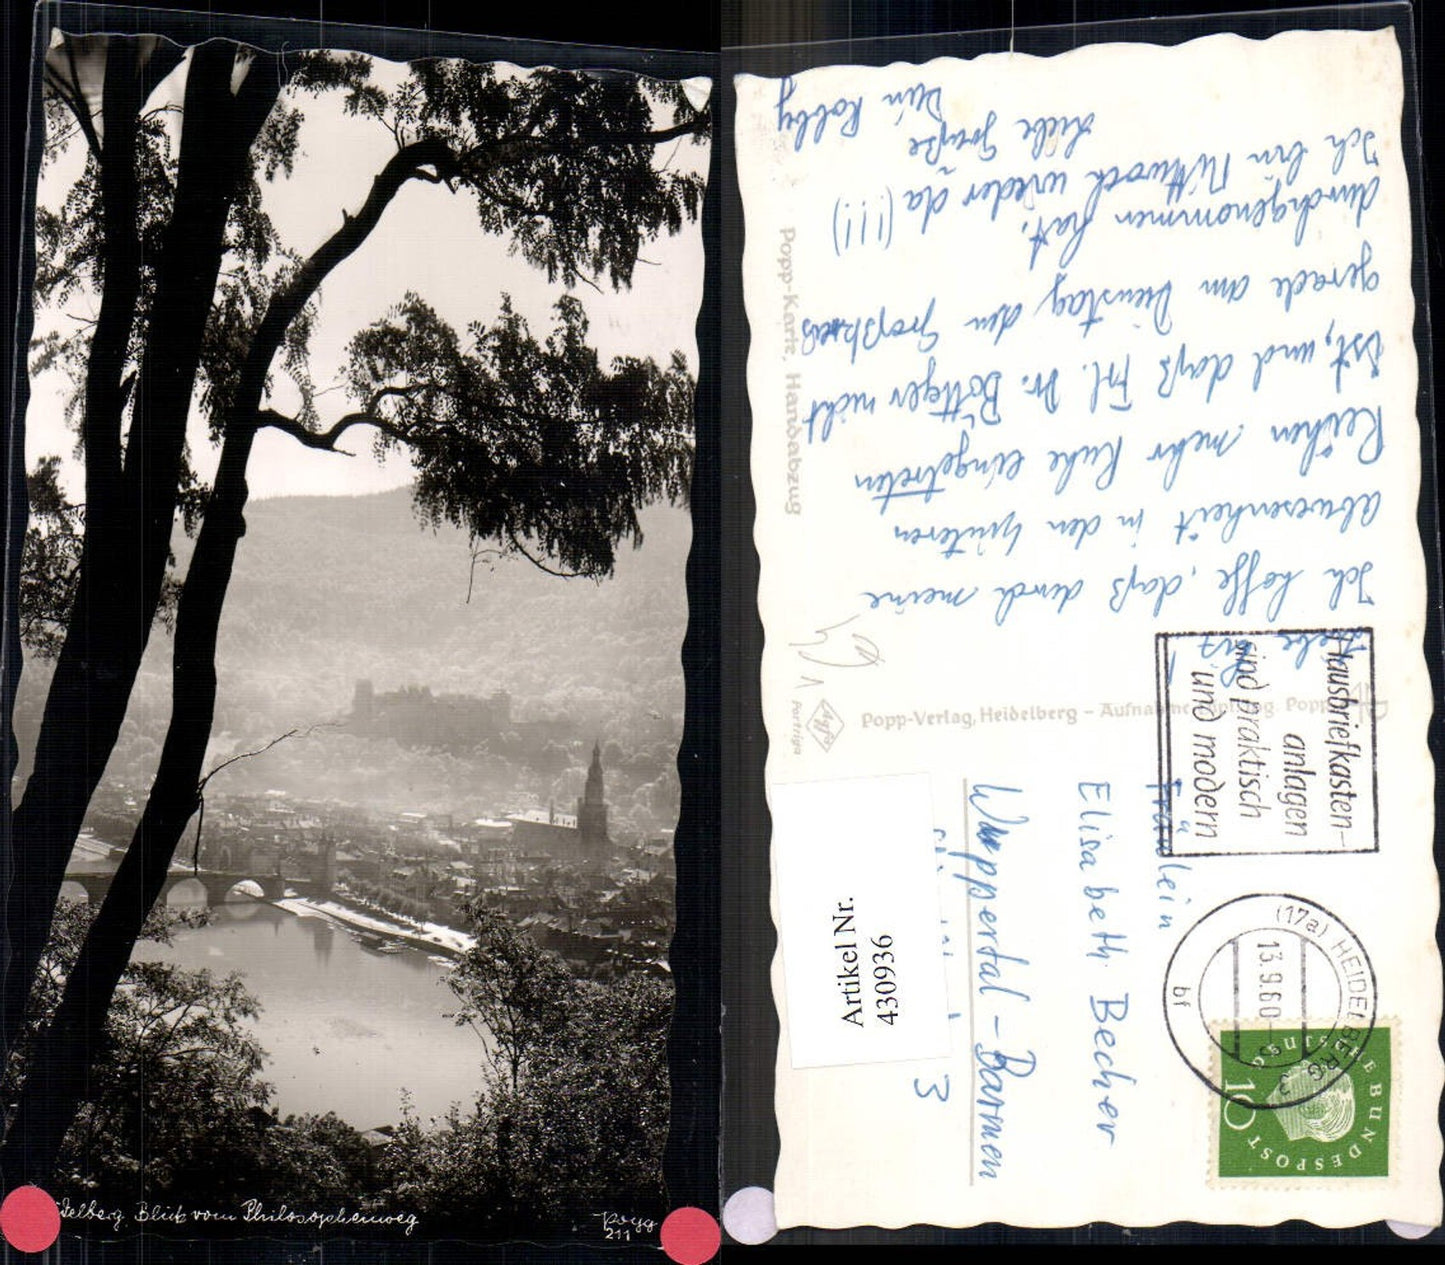 delberg. Blick vom Philosophenweg
Popp
211
Liebe
Ich hoffe, daß durch meine
Abwesenheit in den hinteren
Reihen mehr Ruhe eingetreten
ist, und daß Frl. Dr. Böttger nicht
gerade am Dienstag den Großkreis
durchgenommen hat.
Ich bin Mittwoch wieder da (!!!)
Liebe Grüße
Dein Robby
Popp-Karte, Handabzug
Popp-Verlag, Heidelberg - Aufnahme Popp
Agfa
Portriga
Hausbriefkasten-
anlagen
sind praktisch
und modern
(17a) HEIDELBERG 3
13.9.60
bf
DEUTSCHE BUNDESPOST
10
Fräulein
Elisabeth Becher
Wuppertal-Barmen
3
Artikel Nr.
430936